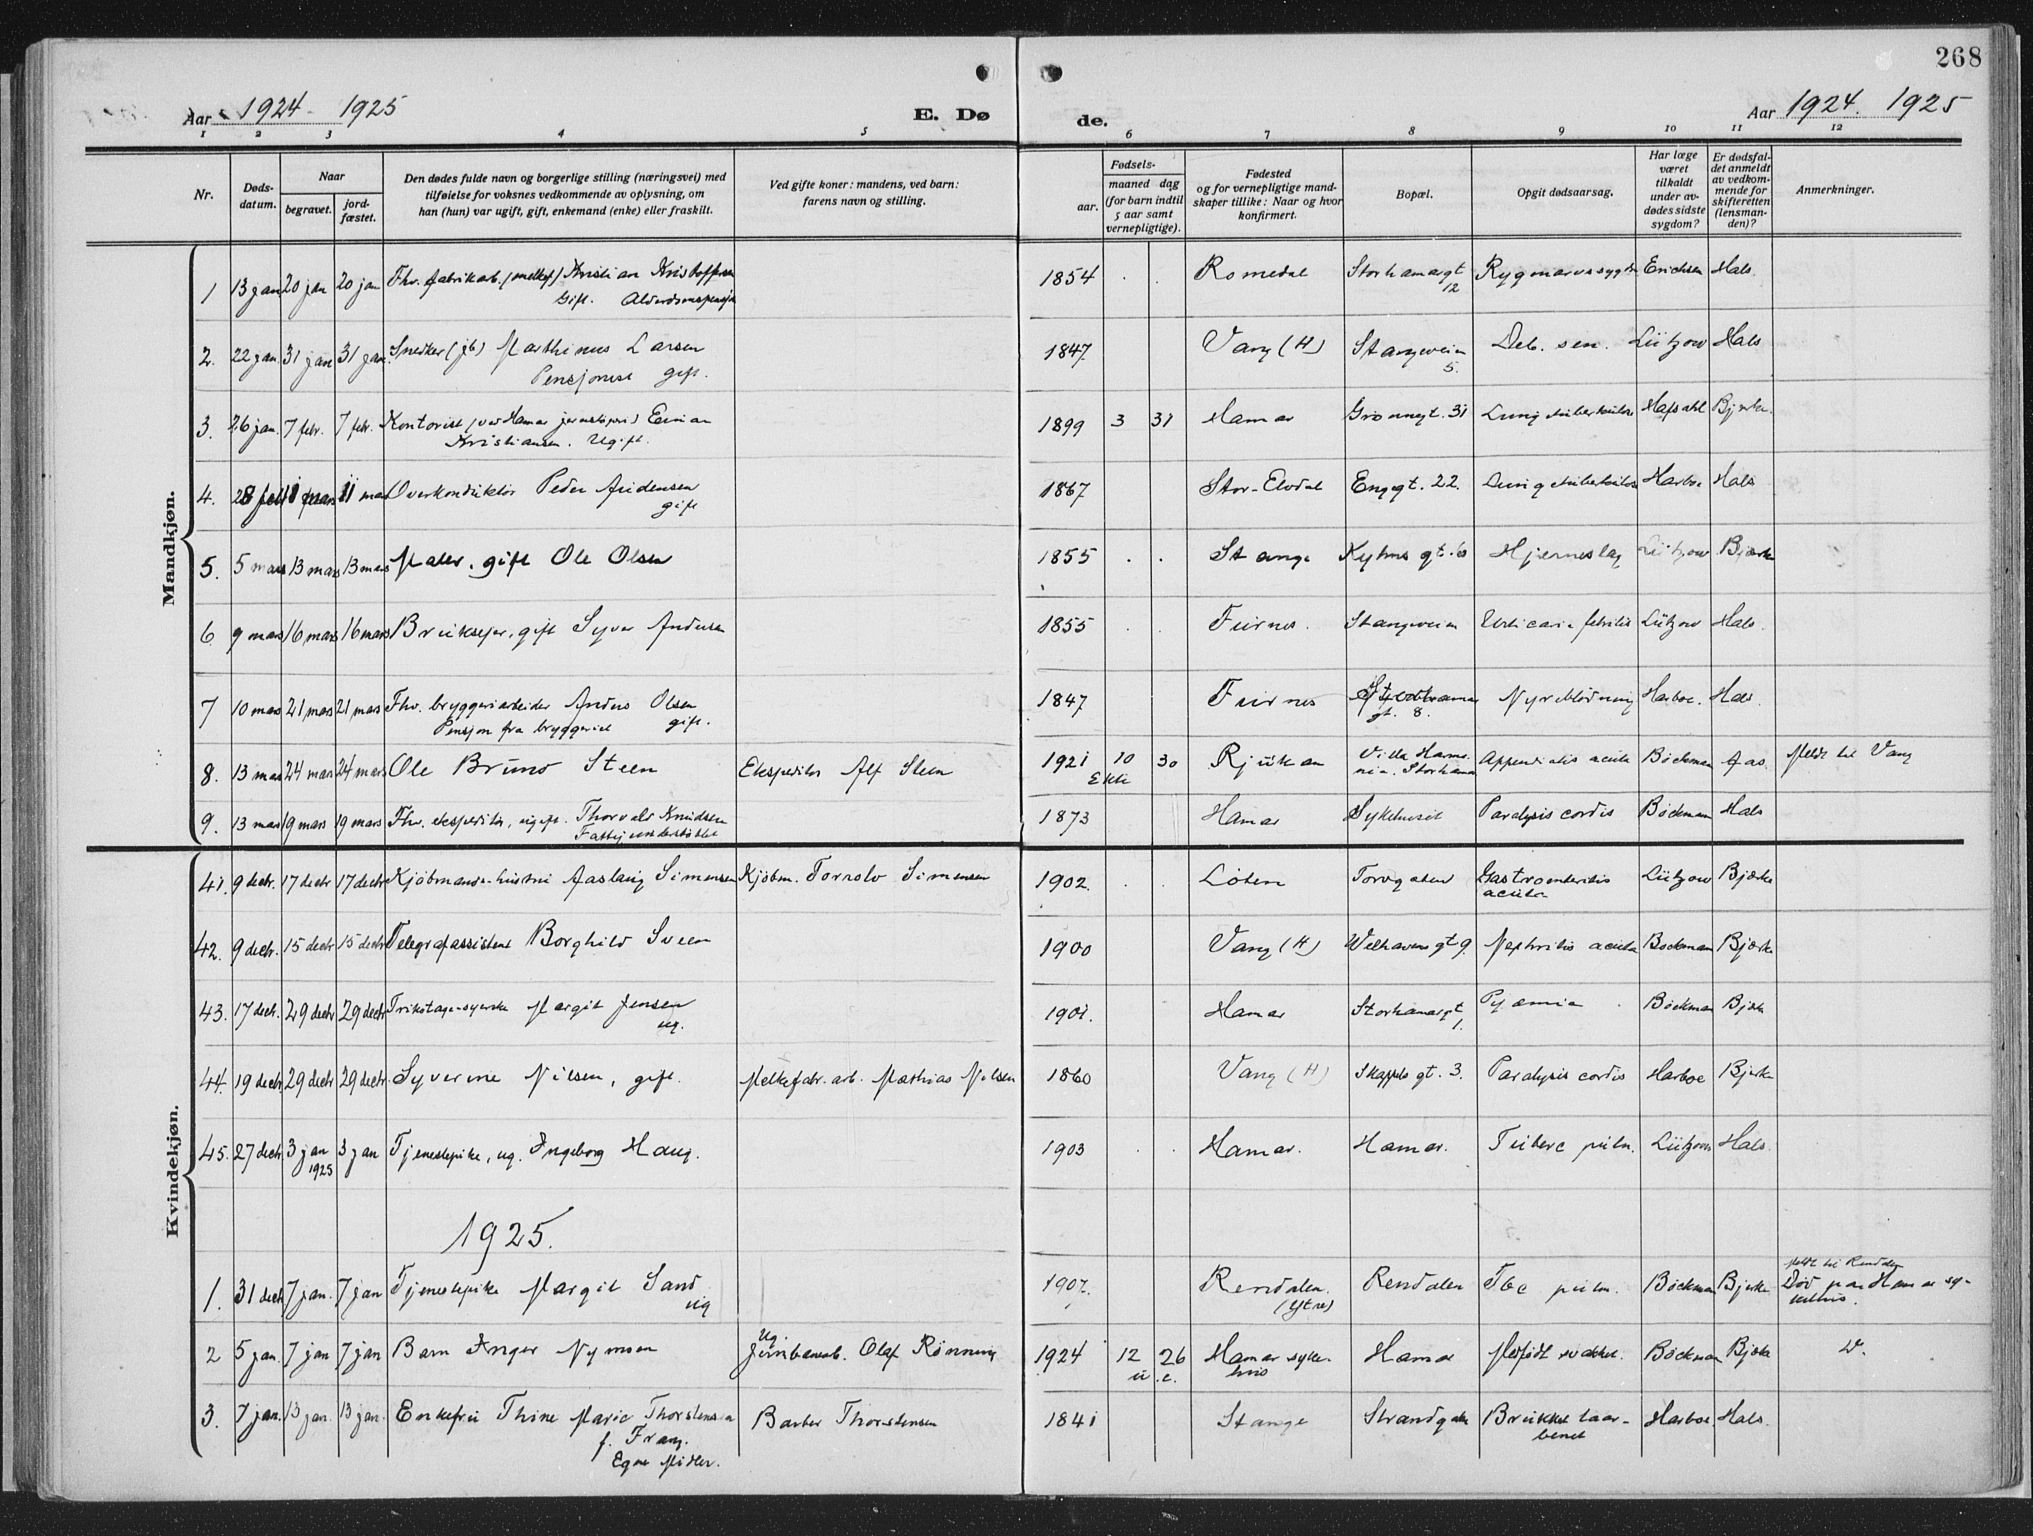 268
Aar 1924 - 1925
E. Dø
de.
Aar 1924. 1925
1 2 3 4 5 6 7 8 9 10 11 12
Nr.
Døds-
datum.
Naar
begravet.
jord-
fæstet.
Den dødes fulde navn og borgerlige stilling (næringsvei) med
tilføielse for voksnes vedkommende av oplysning, om
han (hun) var ugift, gift, enkemand (enke) eller fraskilt.
Ved gifte koner: mandens, ved barn:
farens navn og stilling.
Fødsels-
aar.
maaned dag
(for barn indtil
5 aar samt
vernepligtige).
Fødested
og for vernepligtige mand-
skaper tillike: Naar og hvor
konfirmert.
Bopæl.
Opgit dødsaarsag.
Har læge
været
tilkaldt
under av-
dødes sidste
sygdom?
Er dødsfal-
det anmeldt
av vedkom-
mende for
skifteretten
(lensman-
den)?
Anmerkninger.
Mandkjøn.
1 13 jan 20 jan 20 jan Fhv. fabrikarb. (melkef) Kristian Kristoffersen 1854 Romedal Storhamargt Rygmarvssygdom Erichsen Hals.
Gift. 12
2. 22 jan. 31 jan 31 jan. Snedker (jb) Marthinus Larsen 1847 Vang (H) Stangeveien Deb. sen. Lützow Hals
Pensjonist gift. 5.
3. 26 jan. 7 febr. 7 febr. Kontorist (ved Hamar jernstøperi) Einar 1899 3 31 Hamar Grønnegt. 31 Lungetuberkulose Hafsahl Bjerke.
Kristiansen. Ugift.
4. 28 feb 11 mars 11 mars Overkonduktør Peder Andersen 1867 Stor-Elvdal Enggt. 22. Lungetuberkulose Harboe Hals
gift
5. 5 mars 13 mars 13 mars Maler. gift Ole Olsen 1855 Stange Kyhns gt. Hjerneslag Lützow Bjerke
6. 9 mars 16 mars 16 mars Brukseier, gift Syver Andersen 1855 Furnes. Stangeveien Urticaria febrilis Lützow Hals.
7 10 mars 21 mars 21 mars Fhv. bryggeriarbeider Anders Olsen 1847 Furnes Storhamar Nyreblødning Harboe. Hals.
Pensjon fra bryggeriet gift. gt. 8.
8. 13 mars 24 mars 24 mars Ole Bruno Steen Ekspeditør Alf Steen 1921 10 30 Rjukan Villa Appendicitis acuta Böckman Aas. Meldt til Vang
Ekte Storhamar
9. 13 mars 19 mars 19 mars Fhv. ekspeditør, ugift. Thorvald Knudsen 1873 Hamar Sykehuset Paralysis cordis Böckman Hals
Fattigunderstøttet
Kvindekjøn.
41. 9 decbr. 17 decbr 17 decbr Kjøbmands-hustru Aaslaug Simensen Kjøbm. Tornolv Simensen 1902. Løten Torvgaten Gastroenteritis Lützow Bjerke
acuta
42. 9 decbr. 15 decbr 15 decbr Telegrafassistent Borghild Sveen 1900 Vang (H) Welhavens gt 9. Nephritis acuta Bockman Bjerke
43. 17 decbr. 29 decbr 29 decbr Trikotage-syerske Margit Jensen 1901. Hamar Storhamargt Pyæmia Böckman Bjerke
ug. 1.
44. 19 decbr 29 decbr 29 decbr Syverine Nilsen, gift. Melkefabr. arb. Mathias Nilsen 1860 Vang (H) Skappels gt. 3. Paralysis cordis Harboe Bjerke
45. 27 decbr 3 jan 3 jan Tjenestepike, ug. Ingeborg Haug. 1903 Hamar. Hamar. Tuberc pulm. Lützow Hals
1925
1925.
1. 31 decbr 7 jan. 7 jan Tjenestepike Margit Sand 1907. Rendalen. Rendalen Tbc pulm. Böckman Bjerke Meldt til Rendalen
ug (Ytre) Død paa Hamar sy-
kehus.
2 5 jan. 7 jan 7 jan Barn Inger Nymoen Ug. Jernbanearb. Olaf Rønning 1924 12 26 Hamar syke- Hamar Medfødt svakhet. Böckman Bjerke
u. e. hus
3. 7 jan. 13 jan. 13 jan. Enkefru Thine Marie Thorstensen Barber Thorstensen 1841 Stange Strandgaten Brukket laar- Harboe Hals.
f. Frang. benet
Egne Midler.